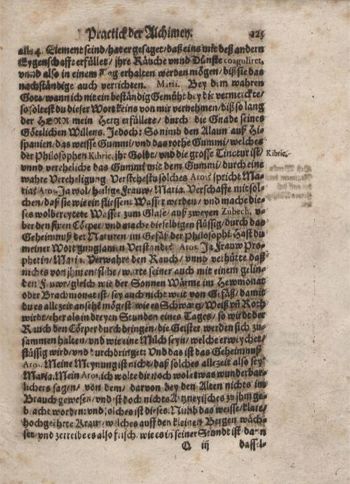 Practick der Alchimey. 225
alle 4. Element seind / hat er gesaget / daß eins mit deß andern
Eygenschafft erfüllet / ihre Räuche vnnd Dünste coaguliret,
vnnd also in einem Tag erhalten werden mögen / biß sie das
nachständige auch verrichten. Maria. Bey dem wahren
Gott / wann ich mit ein beständig Gemüht bey dir vermerckte /
so soltest du dieser Wort keins von mir vernehmen / biß so lang
der HERR mein Hertz erfüllet / durch die Gnade seines
Göttlichen Willens. Jedoch: So nimb den Alaun auß His-
panien / das weisse Gummi / vnd das rothe Gummi / welches
der Philosophen Kibric, ihr Goldt / vnd die grosse Tinctur ist / Kibric.
vnnd vereheliche das Gummi mit dem Gummi / durch eine
wahre Vereheligung. Verstehestu solches Aros? spricht Ma-
ria / Aros Ja wol / heilige Frauw / Maria. Verschaffe mit sol-
chen / daß sie wie ein fliessent Wasser werden / vnd mache die-
ses wolbereytete Wasser zum Glase / auß zweyen Zubech, v-
ber den fixen Cörper / vnd mache dieselbigen flüssig / durch das
Geheimnuß der Naturen im Gefäß der Philosophi. Hast du
meiner Meynung Verstandt? Aros. Ja Frauw Pro-
phetin / Maria. Verwahre den Rauch / vnnd verhütte daß
nichts von ihme entfliehe / warte seiner auch mit einem gelin-
den Feuwr / gleich wie der Sonnen Wärme im Hewmonat
oder Brachmonat ist / sey auch nicht weit vom Gefäß / damit
du es allezeit ansehest mögest / wie es Schwartz / Weiß vnd Roth
wirdt / ehe als in dreyen Stunden eines Tages / so wirdt der
Rauch den Cörper durchdringen / die Geister werden sich zu-
sammen halten / vnd wie eine Milch seyn / welche erweychet /
flüssig wird / vnd durchdringet / Vnd das ist das Geheimnuß
Aros. Meine Meynung ist nicht / daß solches allezeit also sey /
Maria. Mein Aros, ich wolte dir noch wol etwas wunderbar-
lichers sagen / von dem / darvon bey den Alten nichts im
Brauch gewesen / vnd ist doch nichts Artzneyisches zu ihm ge-
bracht worden: vnd solches ist dieses: Nimb das weisse / klare /
hochgeehrte Kraut / welches auff den kleinen Bergen wäch-
set / vnd zerreibe es also frisch / wie es in seiner Stundt ist / dann
Q iij dassel-